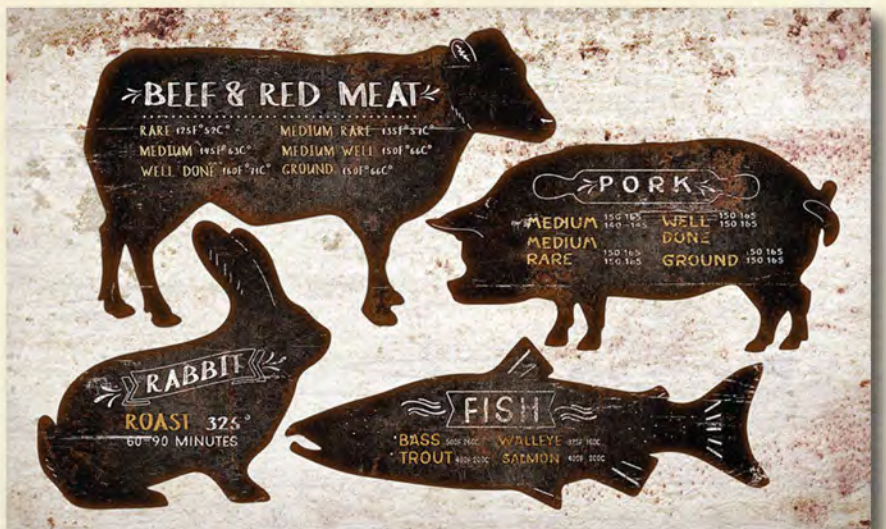 BEEF & RED MEAT
RARE 125F° 52C° MEDIUM RARE 135F° 57C°
MEDIUM 145F° 63C° MEDIUM WELL 150F° 66C°
WELL DONE 160F° 71C° GROUND 150F° 66C°
PORK
MEDIUM 150 165 WELL DONE 150 165
140-145 150 165
MEDIUM RARE 150 165 GROUND 150 165
150 165 150 165
RABBIT
ROAST 325°
60-90 MINUTES
FISH
BASS 500F 260C WALLEYE
TROUT 400F 200C SALMON 400F 200C